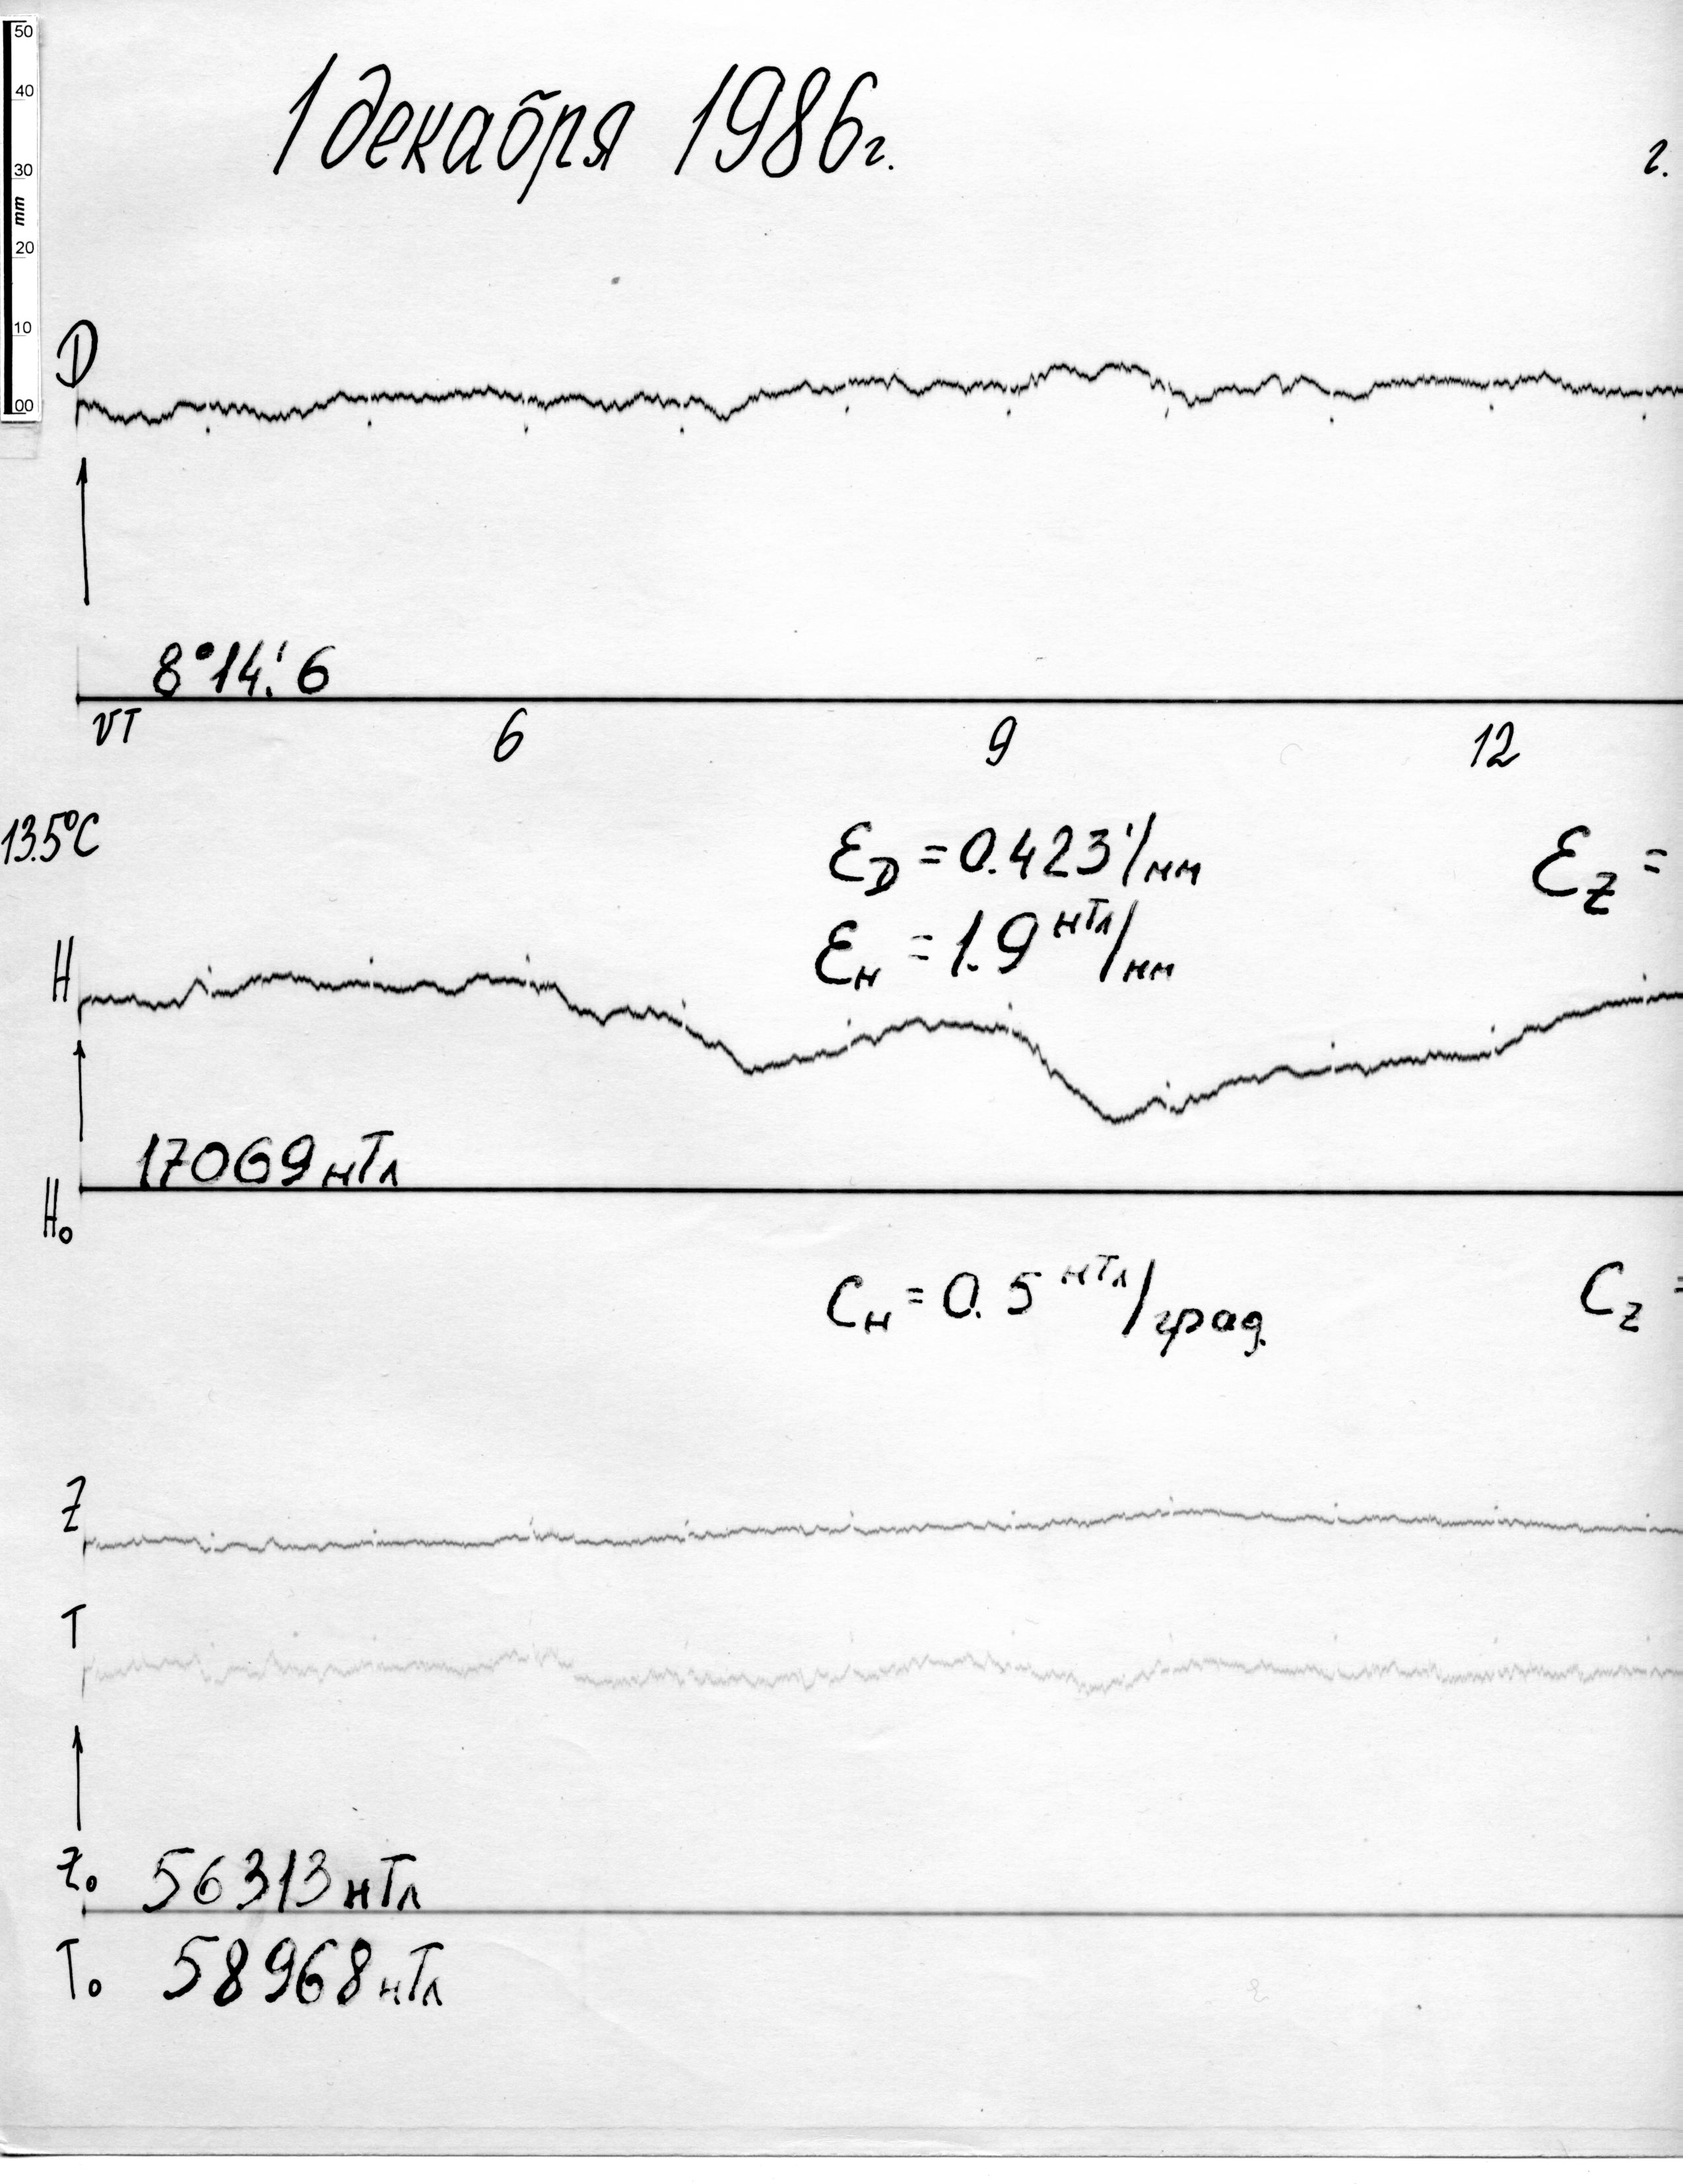 50
40
30
mm
20
10
00
1 декабря 1986г.
г.
D
8°14.'6
UT 6 9 12
13.5°C
ε_D = 0.423'/мм
ε_Z =
ε_H = 1.9 нТл/мм
H
17069 нТл
H₀
C_H = 0.5 нТл/град.
C_Z =
Z
T
Z₀ 56313 нТл
T₀ 58968 нТл